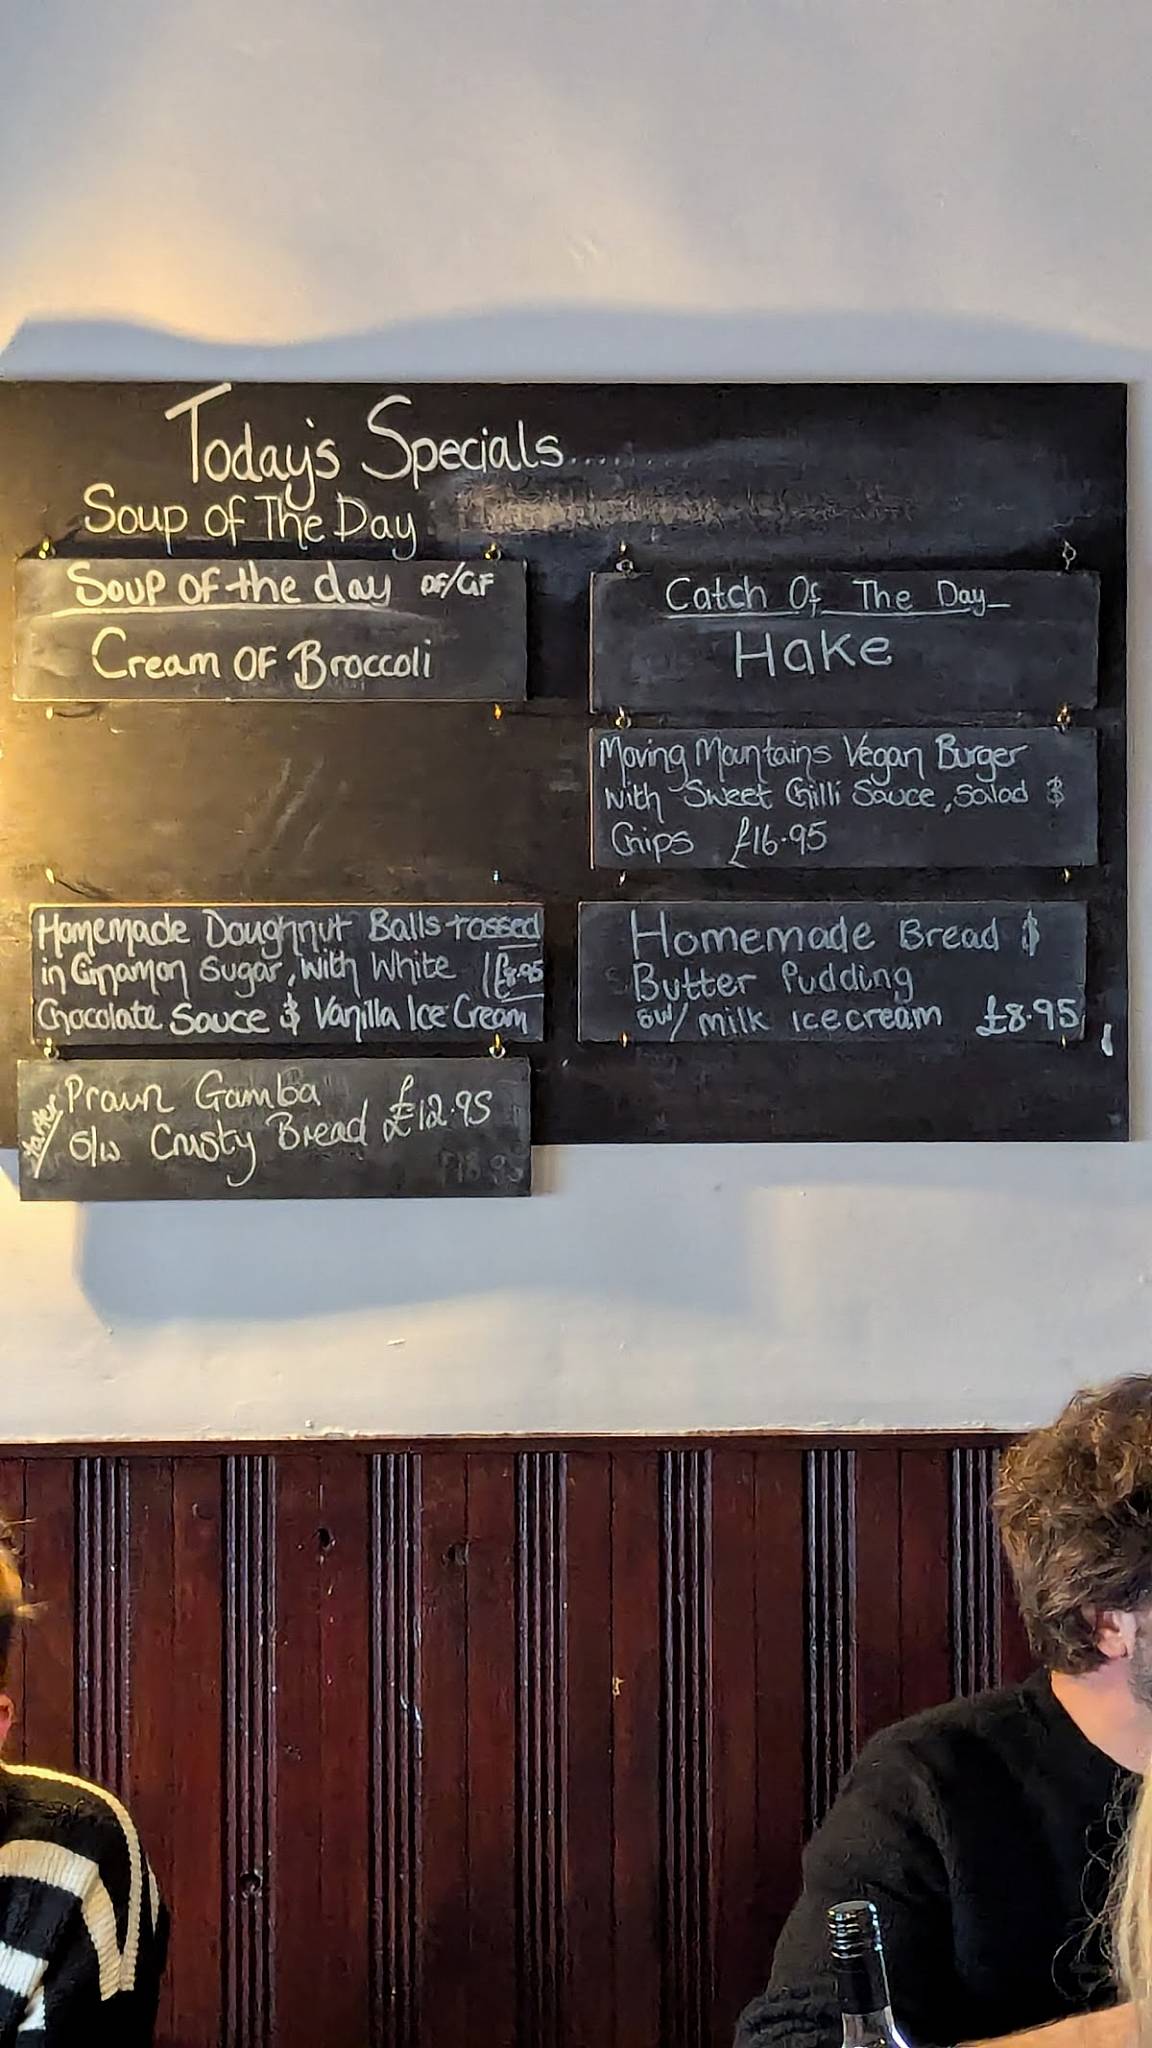 Today's Specials......
Soup of The Day
Soup of the day DF/GF
Cream OF Broccoli
Catch Of The Day
Hake
Moving Mountains Vegan Burger
with Sweet Chilli Sauce, Salad &
Chips £16.95
Homemade Doughnut Balls tossed
in Cinamon Sugar, with White £8.95
Chocolate Sauce & Vanilla Ice Cream
Homemade Bread &
Butter Pudding
sw/ milk icecream £8.95
Starter
Prawn Gamba
S/w Crusty Bread £12.95